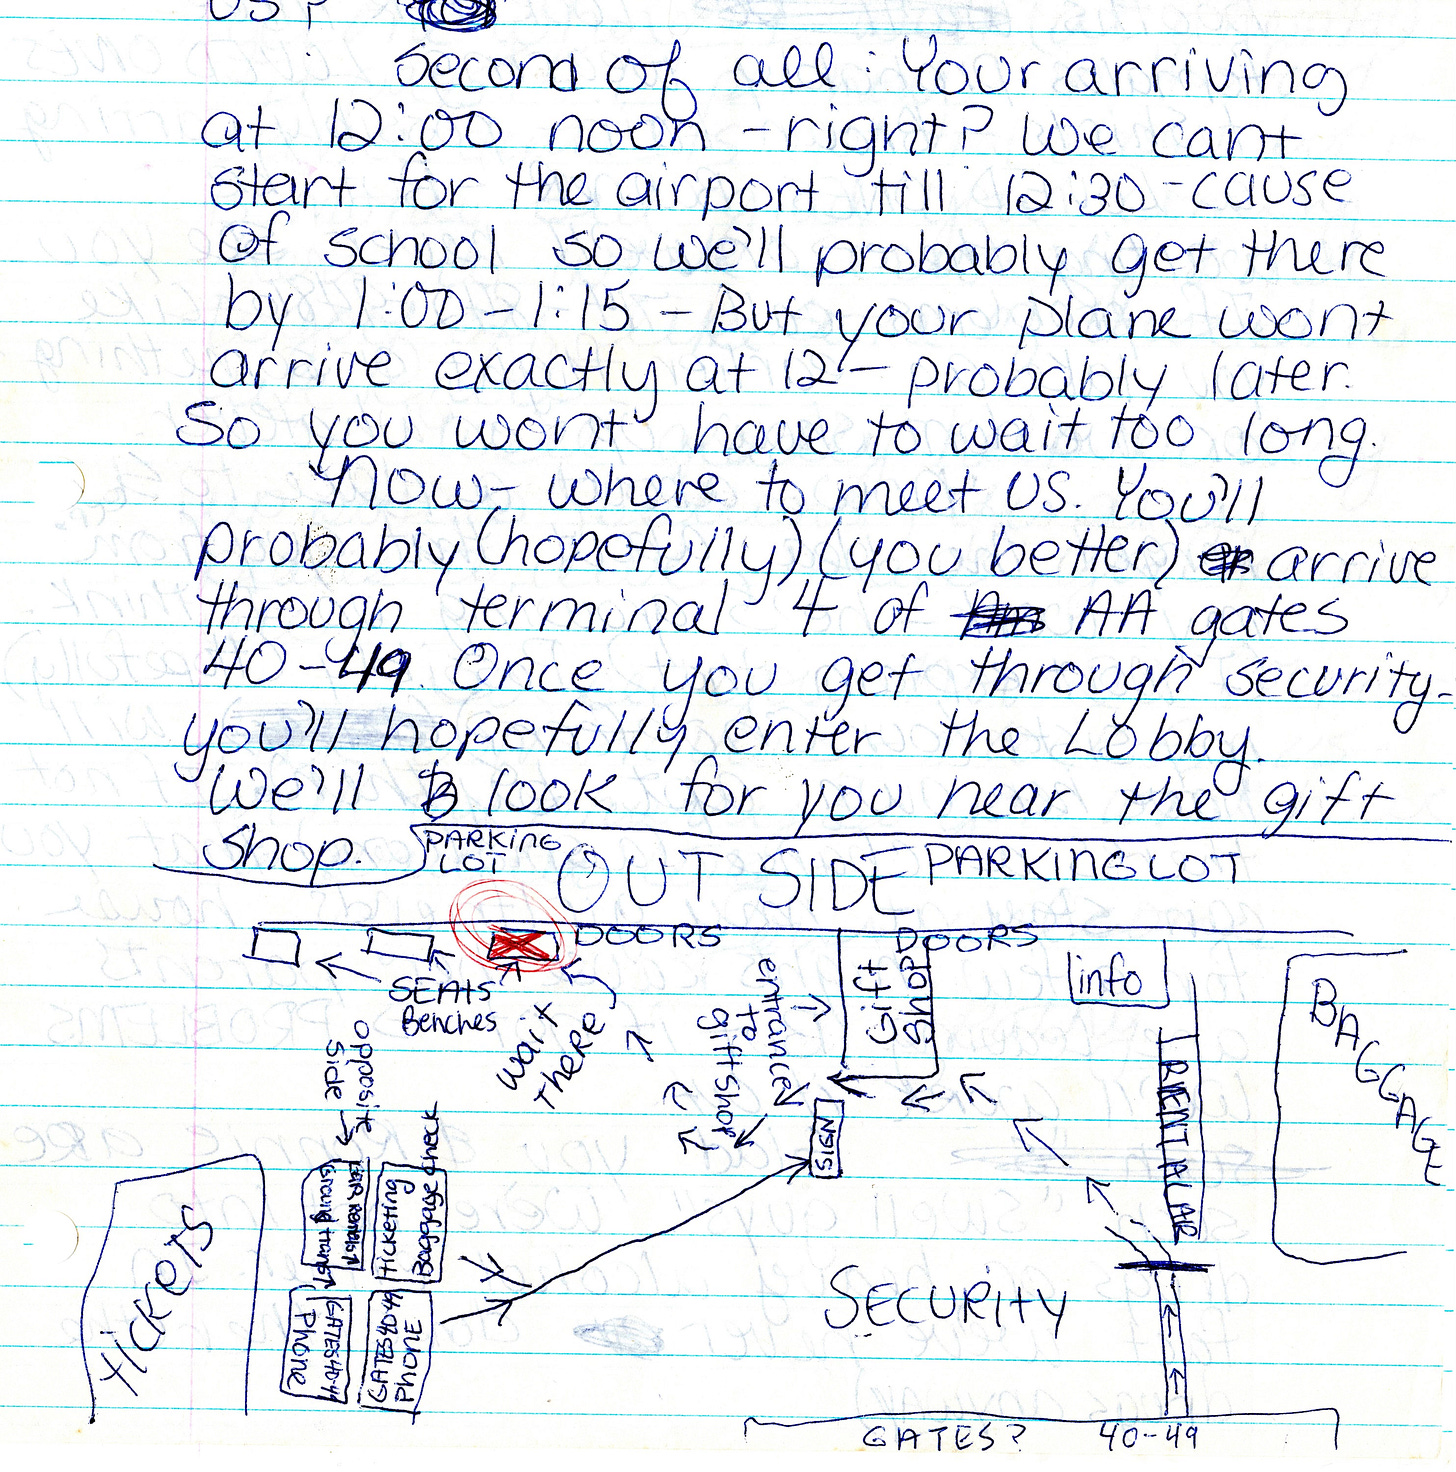 US?
Second of all: Your arriving
at 12:00 noon - right? We cant
start for the airport till 12:30 - cause
of school so we'll probably get there
by 1:00 - 1:15 - But your plane wont
arrive exactly at 12 - probably later.
So you wont have to wait too long.
Now - where to meet us. You'll
probably (hopefully) (you better) arrive
through terminal 4 of AA gates
40-49. Once you get through security -
you'll hopefully enter the Lobby.
We'll look for you near the gift
shop.
PARKING
LOT
OUT SIDE PARKING LOT
DOORS
DOORS
SEATS
Benches
wait
THERE
entrance
to
giftshop
Gift
Shop
info
BAGGAGE
RENT A CAR
SIGN
opposit
side
CAR RENTALS
Ground transp
ticketing
Baggage check
GATES 40-49
Phone
GATES 40-49
PHONE
tickets
SECURITY
GATES? 40-49